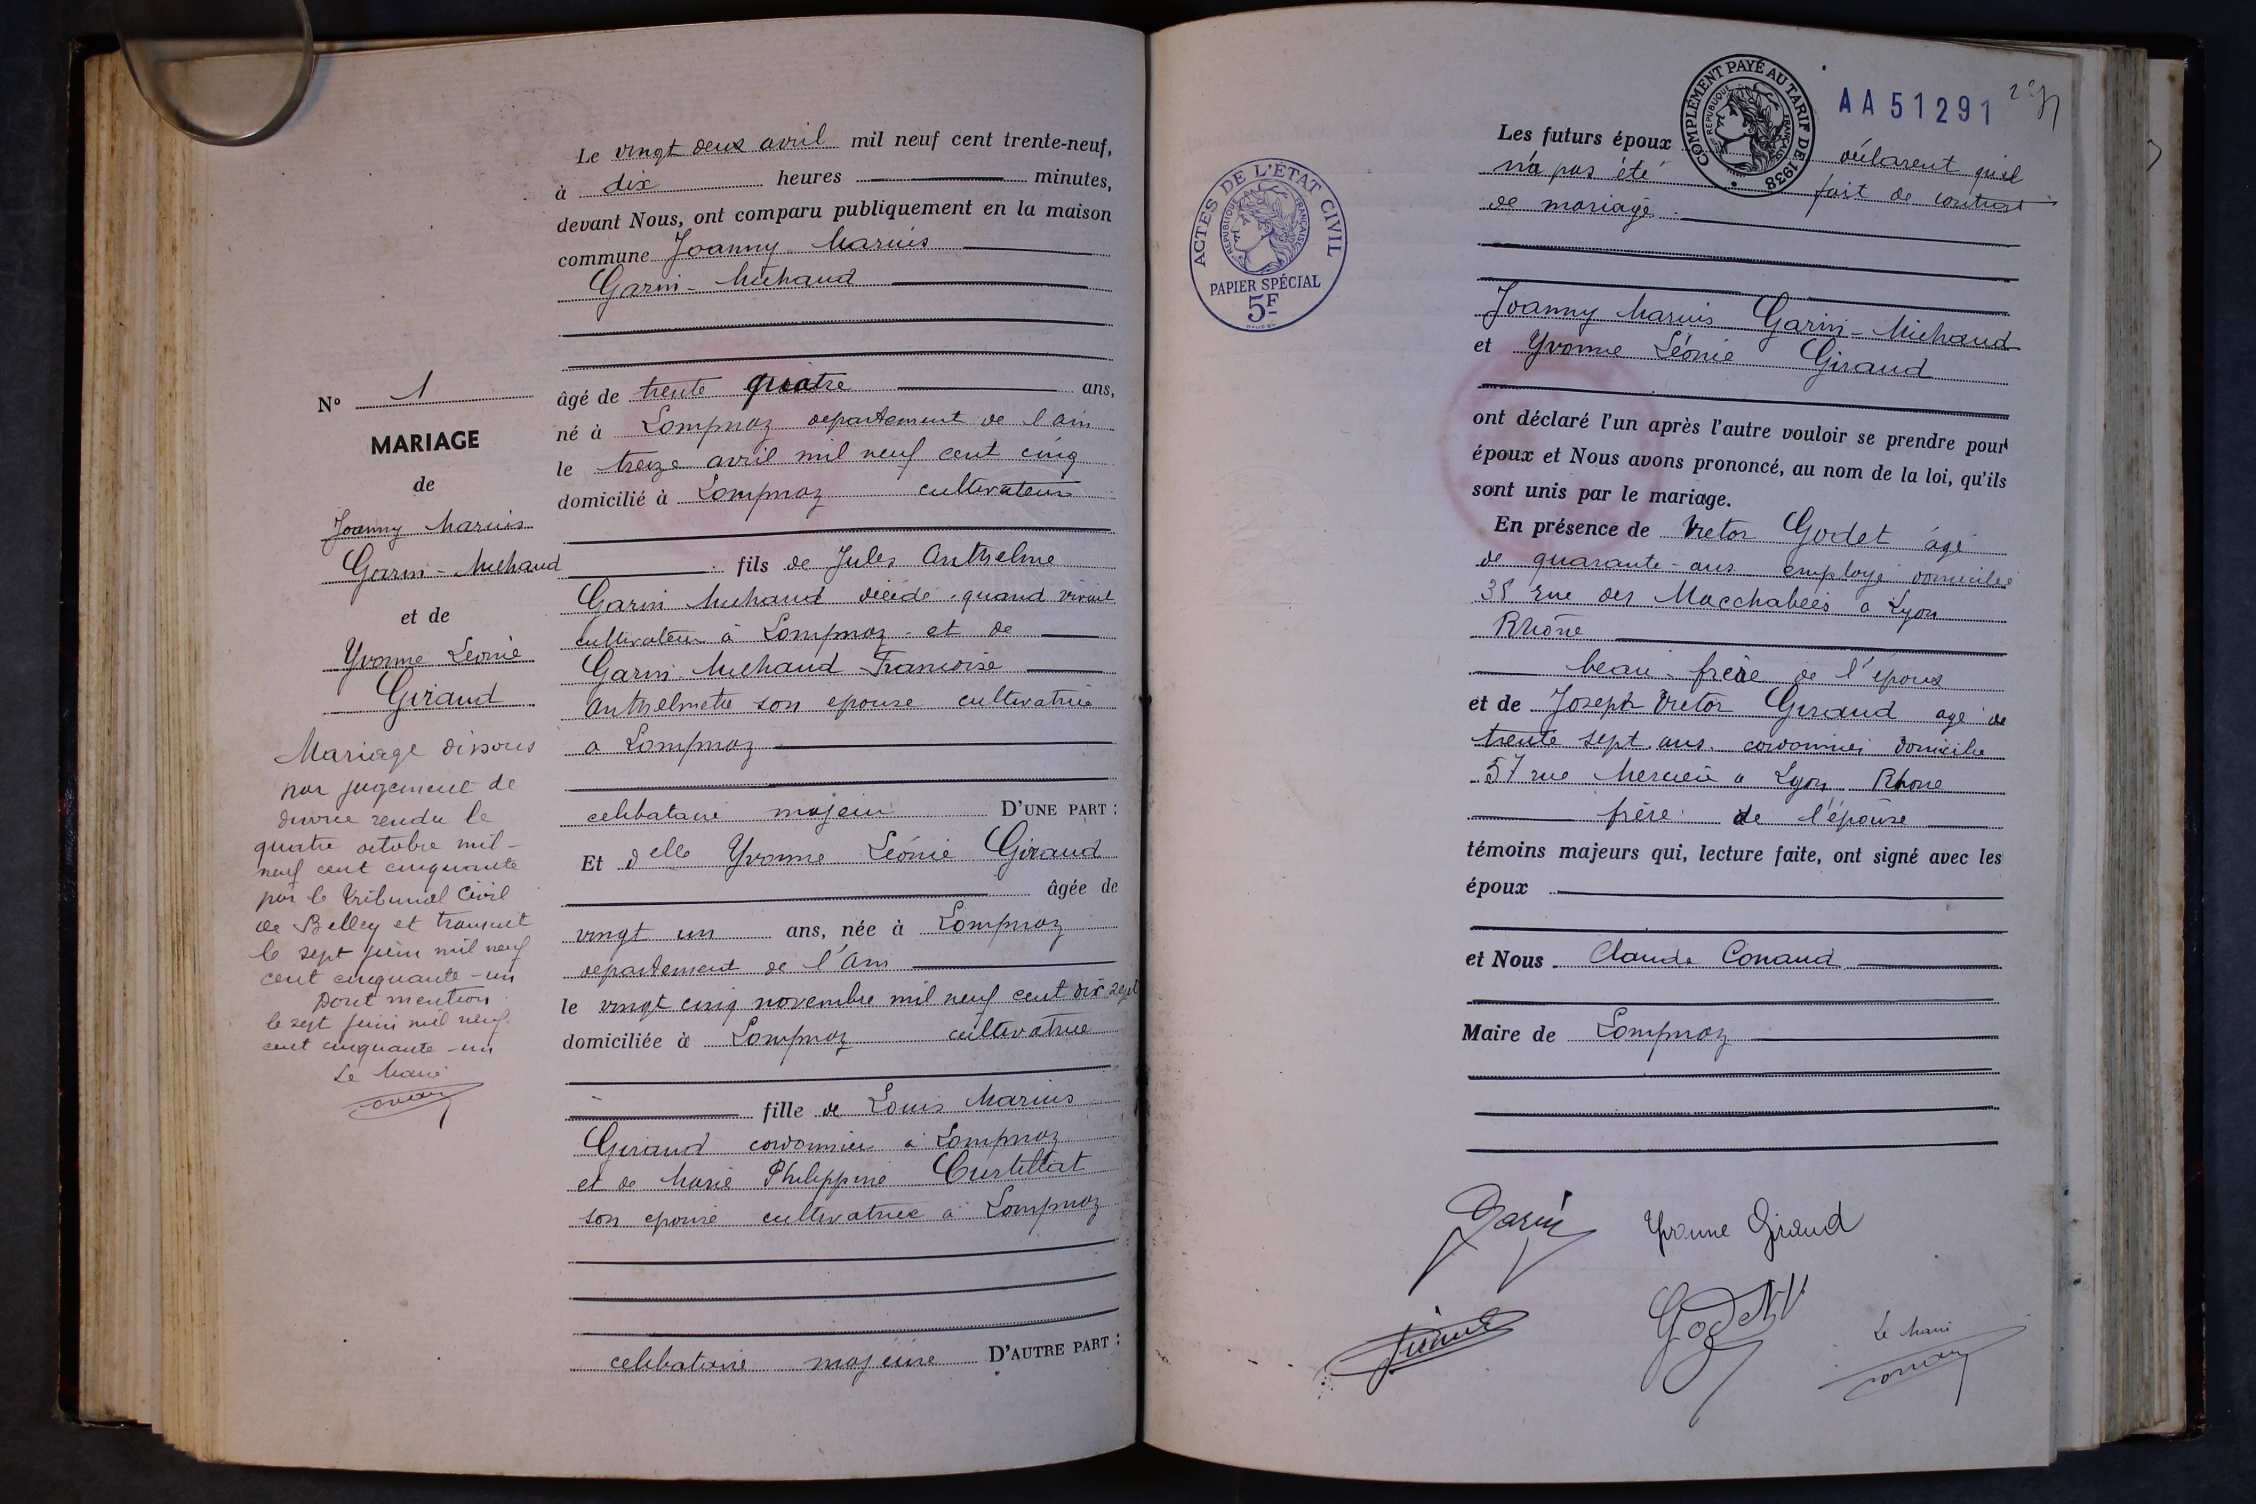 Le vingt deux avril mil neuf cent trente-neuf,
à dix heures minutes,
devant Nous, ont comparu publiquement en la maison
commune Joanny Marius
Garin-Michaud
âgé de trente quatre ans,
né à Lompnaz departement de l'ain
le treize avril mil neuf cent cinq
domicilié à Lompnaz cultivateur
fils de Jules Anthelme
Garin Michaud décédé quand vivant
cultivateur à Lompnaz et de
Garin Michaud Francoise
Anthelmette son epouse cultivatrice
a Lompnaz
celibataire majeur D'UNE PART :
Et delle Yvonne Léonie Giraud
âgée de
vingt un ans, née à Lompnaz
departement de l'Ain
le vingt cinq novembre mil neuf cent dix sept
domiciliée à Lompnaz cultivatrice
fille de Louis Marius
Giraud cordonnier à Lompnaz
et de Marie Philippine Curtillat
son epouse cultivatrice à Lompnaz
celibataire majeure D'AUTRE PART :
N° 1
MARIAGE
de
Joanny Marius
Garin-Michaud
et de
Yvonne Léonie
Giraud
Mariage dissous
par jugement de
divorce rendu le
quatre octobre mil-
neuf cent cinquante
par le Tribunal Civil
de Belley et transcrit
le sept juin mil neuf
cent cinquante-un
Dont mention
le sept juin mil neuf
cent cinquante-un
Le Maire
ACTES DE L'ÉTAT CIVIL
RÉPUBLIQUE FRANÇAISE
PAPIER SPÉCIAL
5F
COMPLÉMENT PAYÉ AU TARIF DE 1938
RÉPUBLIQUE FRANÇAISE
AA51291
Les futurs époux déclarent qu'il
n'a pas été fait de contrat
de mariage.
Joanny Marius Garin-Michaud
et Yvonne Léonie Giraud
ont déclaré l'un après l'autre vouloir se prendre pour
époux et Nous avons prononcé, au nom de la loi, qu'ils
sont unis par le mariage.
En présence de Victor Godet âgé
de quarante-ans employé domicilié
38 rue des Macchabées a Lyon
Rhône
beau-frère de l'époux
et de Joseph Victor Giraud age de
trente sept ans cordonnier domicilie
57 rue Mercière a Lyon Rhone
frère de l'épouse
témoins majeurs qui, lecture faite, ont signé avec les
époux
et Nous Claude Conand
Maire de Lompnaz
Garin Yvonne Giraud
Godet V
Le Maire
Conand